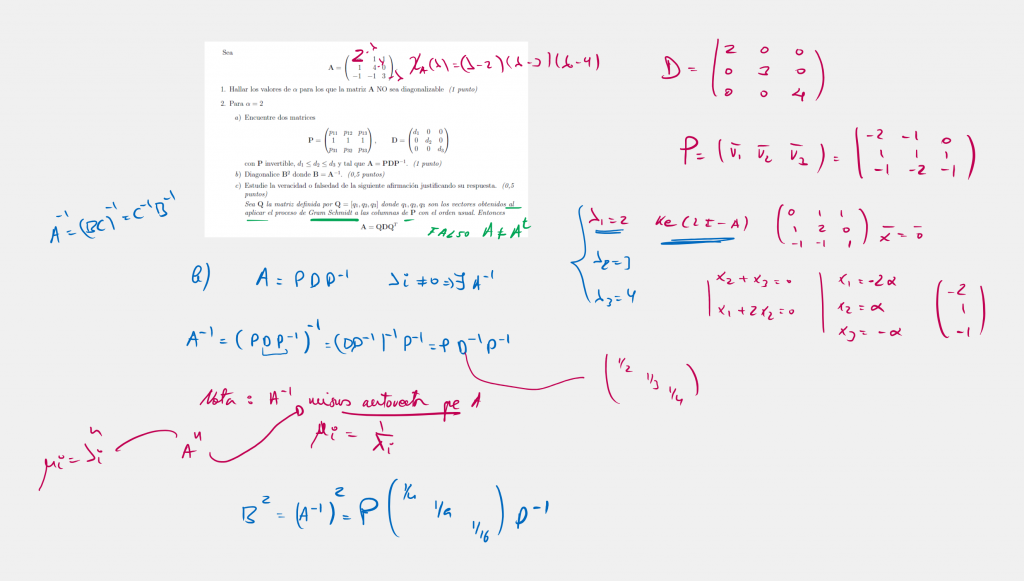 Sea
A = ( 1 1 4 0 -1 -1 3 ) χ_A(λ) = (λ-2)(λ-3)(λ-4)
1. Hallar los valores de α para los que la matriz A NO sea diagonalizable (1 punto)
2. Para α = 2
a) Encuentre dos matrices
P = ( p11 p12 p13 1 1 1 p31 p32 p33 ), D = ( d1 0 0 0 d2 0 0 0 d3 )
con P invertible, d1 ≤ d2 ≤ d3 y tal que A = PDP⁻¹. (1 punto)
b) Diagonalice B² donde B = A⁻¹. (0,5 puntos)
c) Estudie la veracidad o falsedad de la siguiente afirmación justificando su respuesta. (0,5
puntos)
Sea Q la matriz definida por Q = [q1, q2, q3] donde q1, q2, q3 son los vectores obtenidos al
aplicar el proceso de Gram Schmidt a las columnas de P con el orden usual. Entonces
A = QDQᵀ
FALSO A ≠ Aᵗ
D = ( 2 0 0 0 3 0 0 0 4 )
P = (v̄1 v̄2 v̄3) = ( -2 -1 0 1 1 1 -1 -2 -1 )
A⁻¹ = (BC)⁻¹ = C⁻¹B⁻¹
λ1 = 2 Ke(2I - A) ( 0 1 1 1 2 0 -1 -1 1 ) x̄ = 0̄
λ2 = 3
λ3 = 4
x2 + x3 = 0
x1 + 2x2 = 0
x1 = -2α
x2 = α
x3 = -α
( -2 1 -1 )
b) A = PDP⁻¹ λi ≠ 0 => ∃ A⁻¹
A⁻¹ = (PDP⁻¹)⁻¹ = (DP⁻¹)⁻¹P⁻¹ = P D⁻¹P⁻¹
( 1/2 1/3 1/4 )
Nota : A⁻¹ mismos autovect pe A
μi = 1/λi
μi = λiⁿ Aⁿ
B² = (A⁻¹)² = P ( 1/4 1/9 1/16 ) P⁻¹